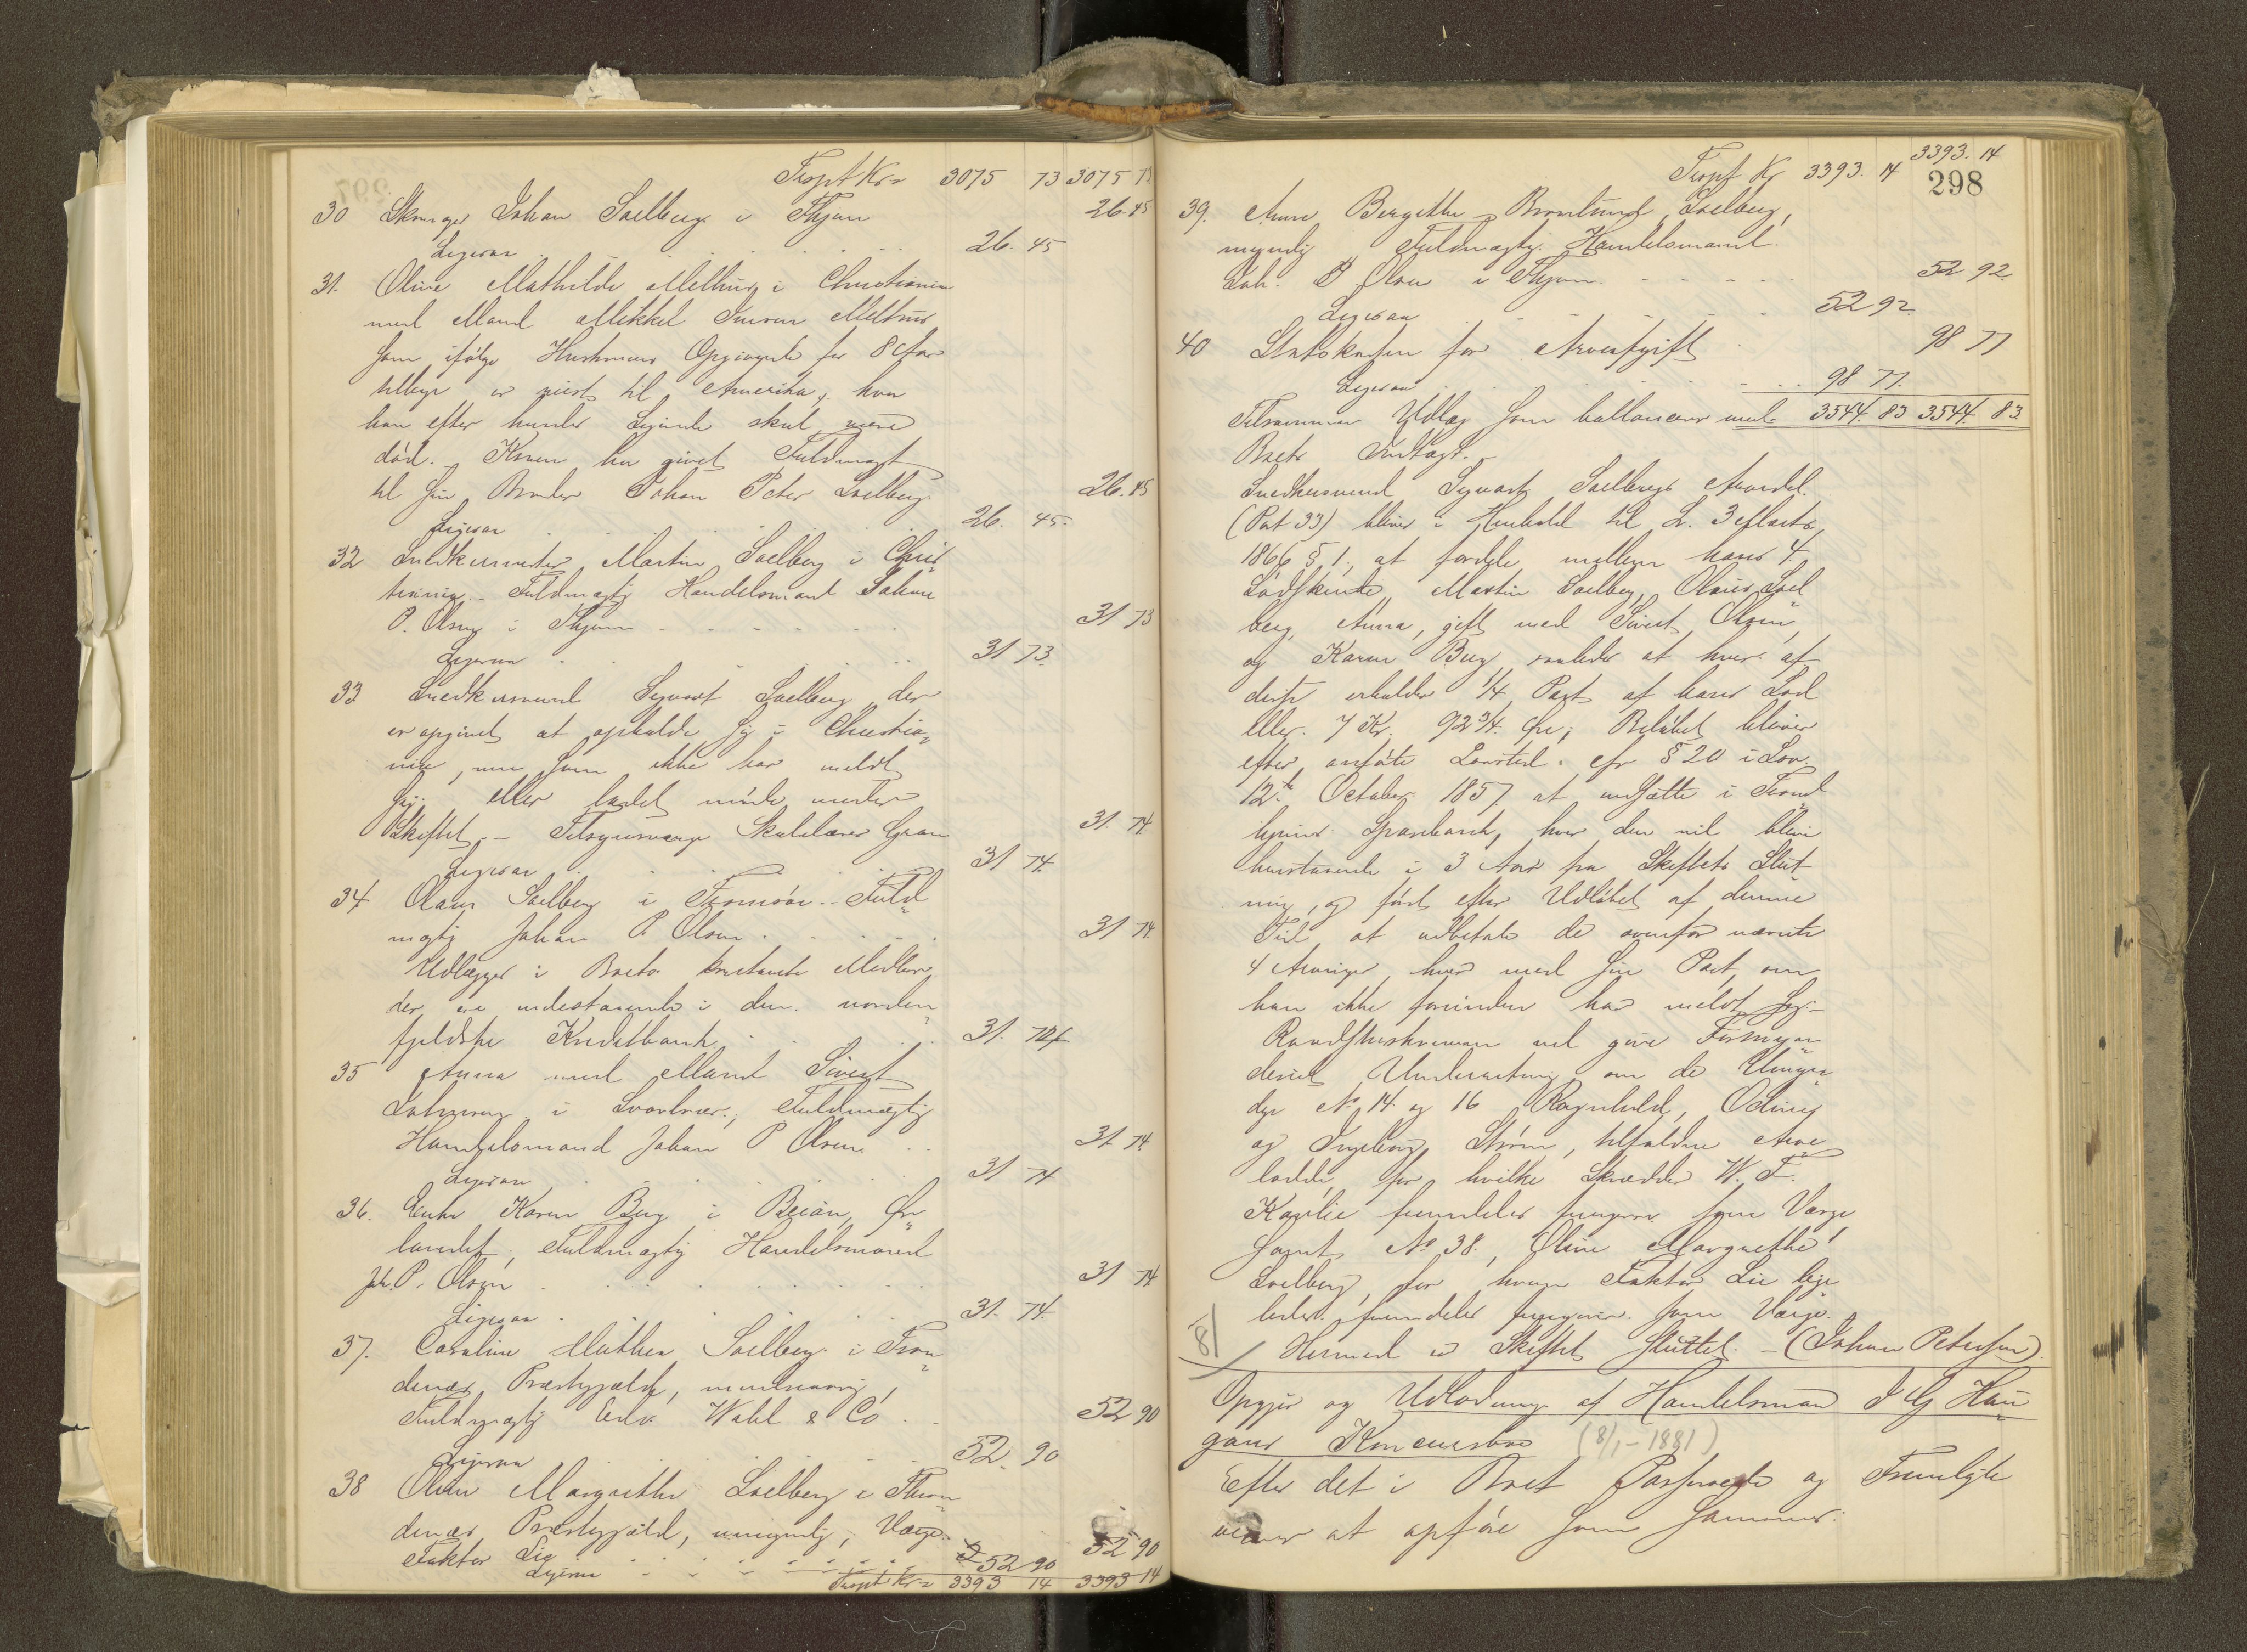 Trspt Kr= 3075 73 3075 73
30 Johan Soelberg i Thjem 26.45
Ligesaa 26. 45
31. Oline Mathilde i Christiania
med Mand Mikkel
som ifølge Hustruens Opgivende for 8 Aar
tilbage er reist til Amerika, hvor
han efter hendes Sigende skal være
død. Konen har givet Fuldmagt
til sin Broder Johan Peter Soelberg 26.45
Ligesaa 26. 45.
32 Snedkermester Martin Soelberg i Chris
tiania. Fuldmægtig Handelsmand Johan
P. Olsen i Thjem 31 73
Ligesaa 31 73.
33 Snedkersvend Sigvart Soelberg der
er opgivet at opholde sig i Christia
nia, men som ikke har meldt
sig eller ladet møde under
Skiftet. – Tilsynsværge Skolelærer Gran 31. 74
Ligesaa 31 74.
34 Olaus Soelberg i Tromsöe. Fuld
mægtig Johan P Olsen 31 74.
Udlægges i Boets kontante Midler,
der ere indestaaende i den norden
fjeldske Kreditbank. 31. 74
35 Anna med Mand Sivert
i Fuldmægtig
Handelsmand Johan P Olsen 31. 74
Ligesaa 31 74
36. Enke Karen Berg i Beian, Ør
landet, Fuldmægtig Handelsmand
Joh. P. Olsen 31 74
Ligesaa 31. 74.
37. Caroline Mathea Soelberg i Tron
denæs Præstegjæld,
Fuldmægtig 52 90
Ligesaa 52. 90
38 Oline Margrethe Soelberg i Thron
denæs Præstegjæld, umyndig, Værge
Faktor Lie 52 90
Ligesaa 52 90
Trspt Kr= 3393 14 3393 14
3393. 14
Trspt Kr 3393. 14
298
39. Anne Bergitte Soelberg,
Fuldmægtig Handelsmand
Joh. P Olsen i Thjem. 52 92.
Ligesaa 52 92.
40 Statskassen for Arveafgift 98 77
Ligesaa 98 77.
Tilsammen Udlæg som ballancerer med 3544. 83 3544. 83
Boets Indtægt.
Snedkersvend Sigvart Soelbergs Arvedel
(Post 33) bliver i Henhold til L. 3 Marts
1866 § 1, at fordele mellem hans 4
Sødskende Martin Soelberg, Olaus Soel
berg, Anna, gift med Sivert
og Karen Berg saaledes at hver af
disse erholder 1/4 Part af hans Lod
eller 7 Kr. 92 3/4 Øre; Beløbet bliver
efter anførte Lovsted cfr § 20 i Lov
12te October 1857 at indsætte i Trond
hjems Sparebank, hvor den vil blive
henstaaende i 3 Aar fra Skiftets Slut
ning, og først efter Udløbet af denne
Tid at udbetale de ovenfor nævnte
4 Arvinger hver med sin Part, om
han ikke forinden har meldt sig –
vil give Formyn
deriet Underretning om de Umyn
dige No 14 og 16 Ragnhild, Odine
og Ingeborg Strøm, tilfaldne Arve
lodde, for hvilke Skrædder W. F.
Kaslie fremdeles fungerer som Værge
samt No 38, Oline Margrethe
Soelberg, for hvem Faktor Lie lige
ledes fremdeles fungerer som Værge.
Hermed er Skiftet sluttet. – (Johan Petersen).
8/
Opgjør og Udlodning af Handelsmand J G Hau
gans Konkursbo (8/1 – 1881)
Efter det i Boet Passerede og Fremlagte
bliver at opføre som sammes: